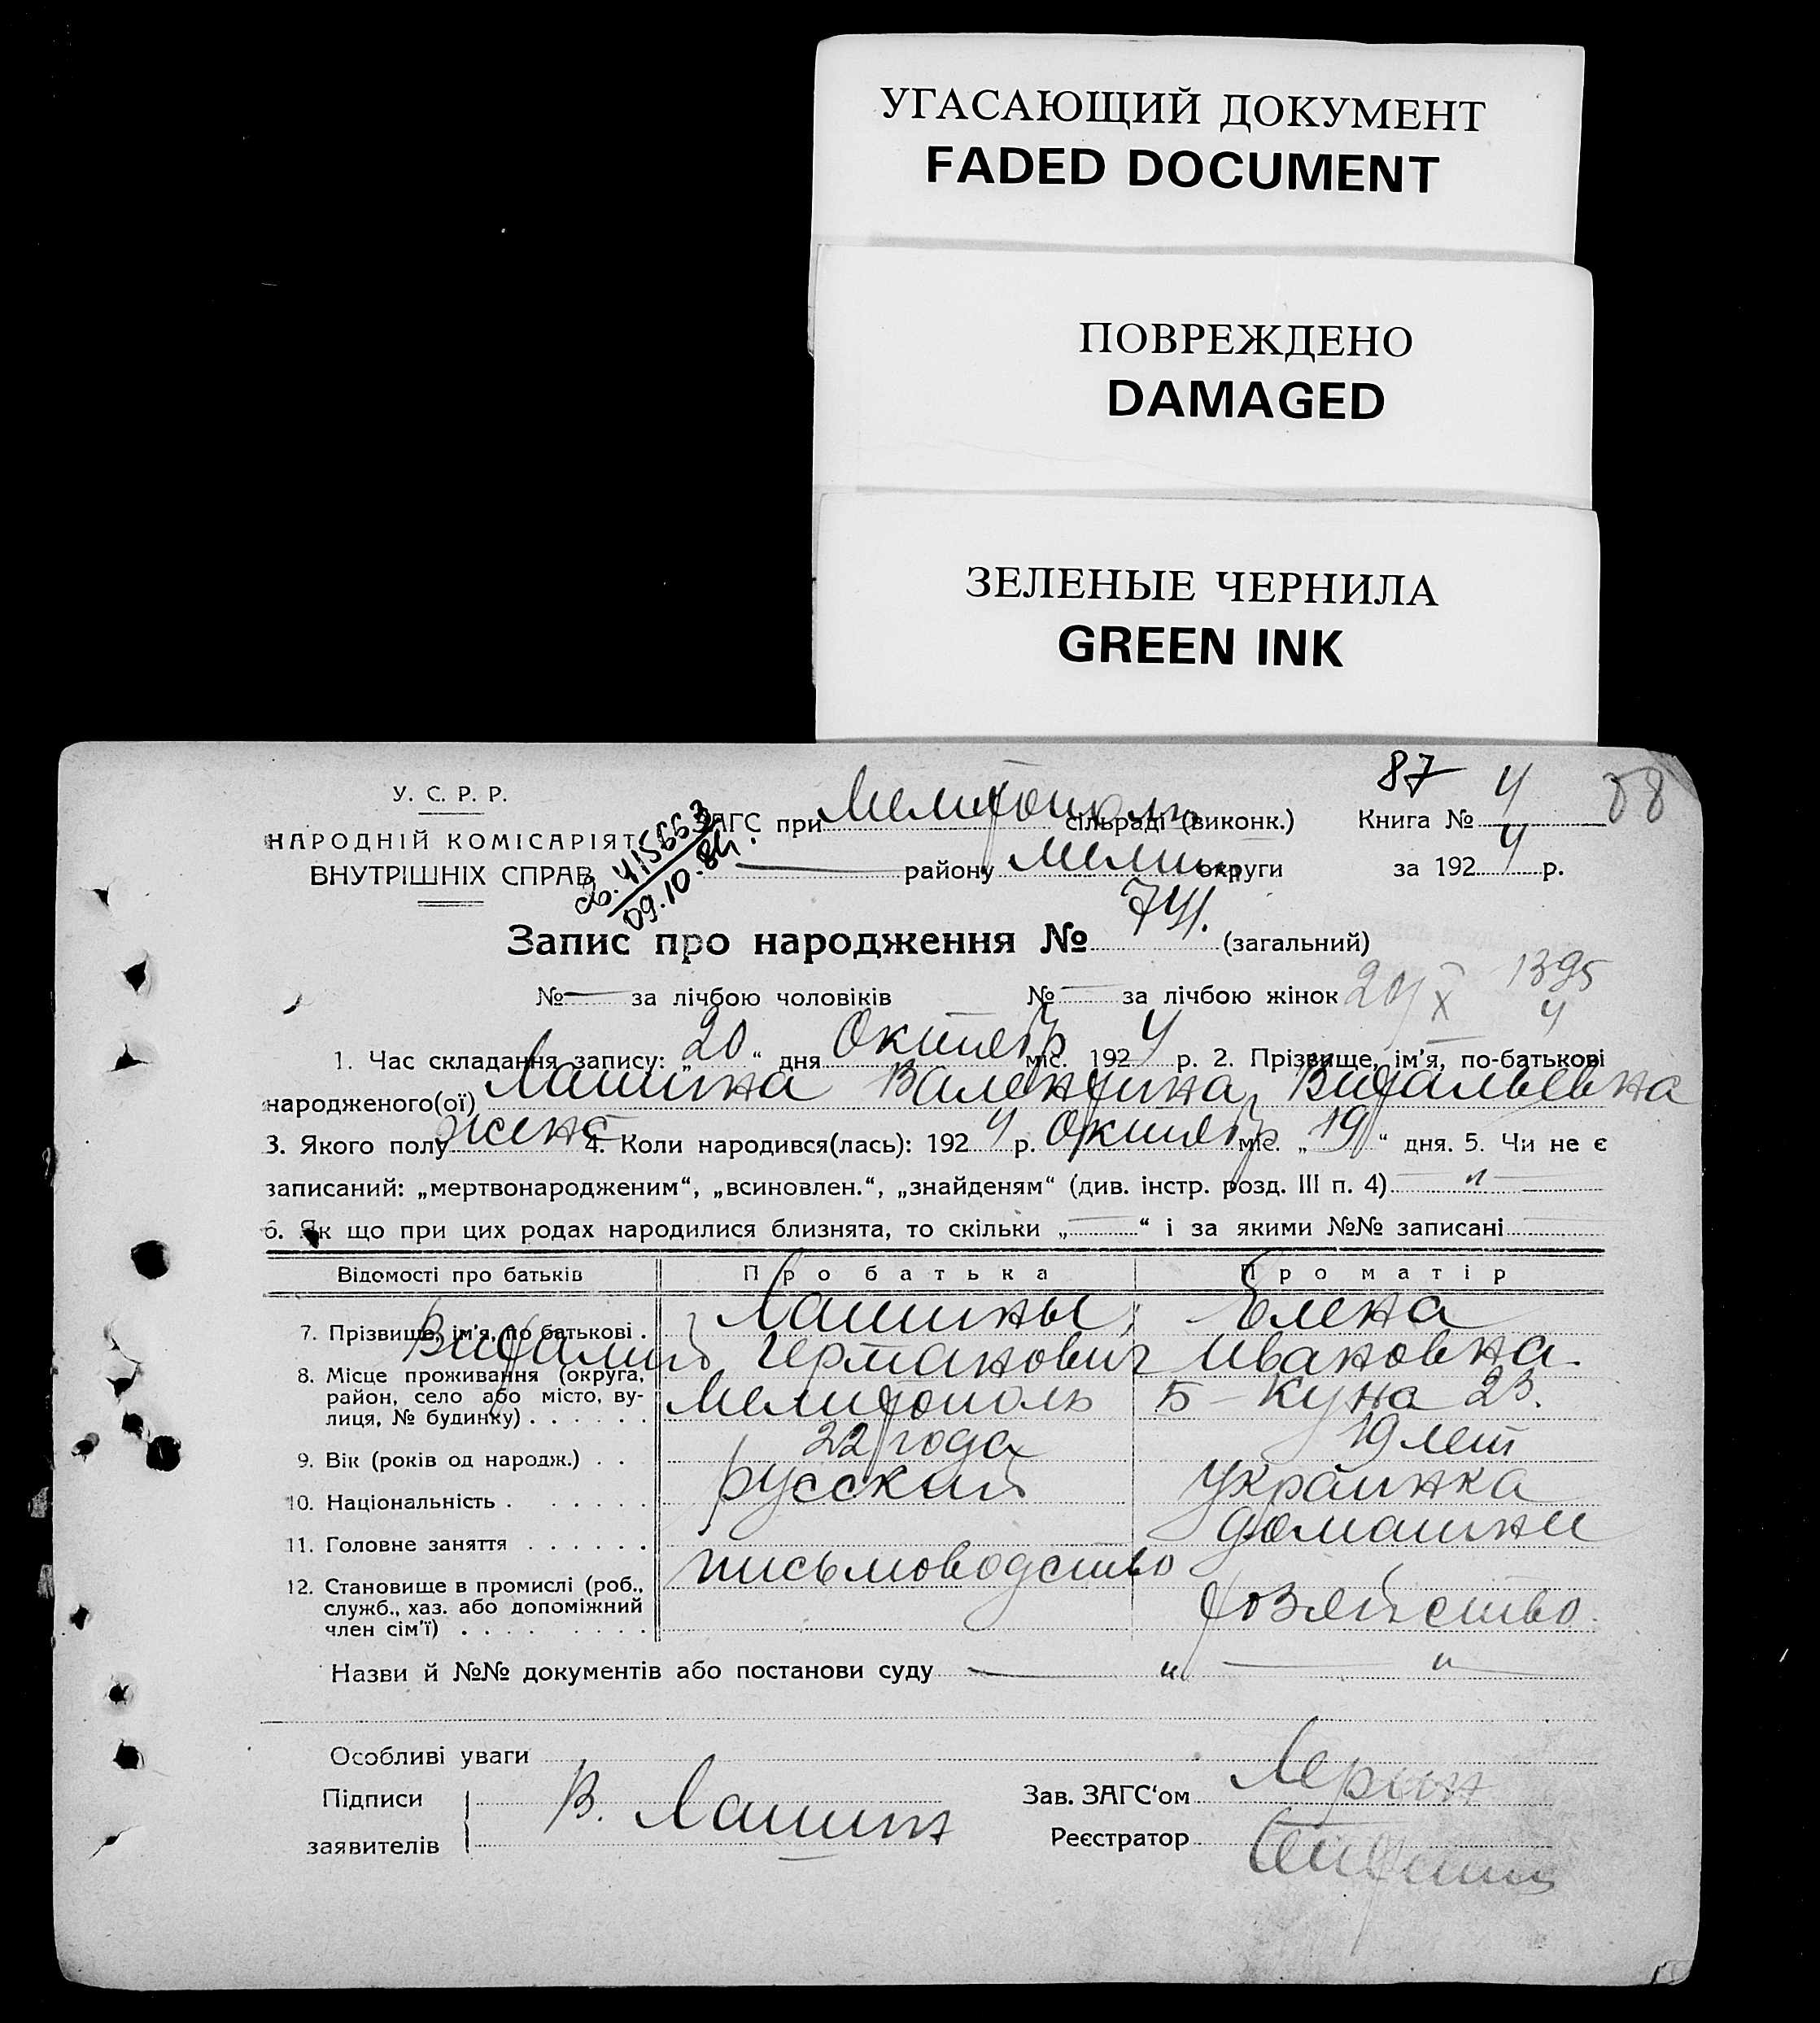 УГАСАЮЩИЙ ДОКУМЕНТ
FADED DOCUMENT
ПОВРЕЖДЕНО
DAMAGED
ЗЕЛЕНЫЕ ЧЕРНИЛА
GREEN INK
87 88
У. С. Р. Р.
НАРОДНІЙ КОМІСАРІЯТ
ВНУТРІШНІХ СПРАВ
415663
09.10.84.
ЗАГС при Мелитополь сільраді (виконк.) Книга № 4
— району Мелит округи за 1924 р.
Запис про народження № 741. (загальний)
№ — за лічбою чоловіків № — за лічбою жінок
1395
1. Час складання запису: „20“ дня Октябр міс. 1924 р. 2. Прізвище, ім'я, по-батькові
народженого(ої) Лашина Валентина Витальевна
3. Якого полу женс 4. Коли народився(лась): 1924 р. Октябр міс. „19“ дня. 5. Чи не є
записаний: „мертвонародженим“, „всиновлен.“, „знайденям“ (див. інстр. розд. III п. 4) — „ —
6. Як що при цих родах народилися близнята, то скільки „—“ і за якими №№ записані —
Відомості про батьків Про батька Про матір
7. Прізвище, ім'я, по батькові . Лашины, Елена
Виталий Германович Ивановна.
8. Місце проживання (округа,
район, село або місто, ву-
лиця, № будинку) . . . . . . Мелитополь Б-Куна 23.
9. Вік (років од народж.) . . 22 года 19 лет
10. Національність . . . . . . русский украинка
11. Головне заняття . . . . . . письмоводство домашнее
12. Становище в промислі (роб.,
служб., хаз. або допоміжний
член сім'ї) . . . . . . . . хозяйство.
Назви й №№ документів або постанови суду — „ — „ —
Особливі уваги
Підписи
заявителів В. Лашин
Зав. ЗАГС'ом
Реєстратор